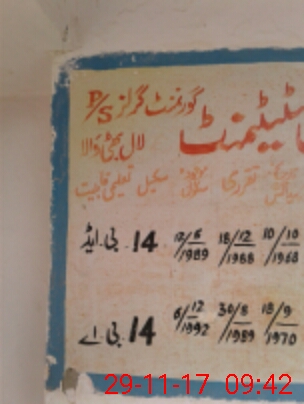 گورنمنٹ گرلز P/S
سٹیٹمنٹ
لال بھٹی والا
تقرری سکیل تعلیمی قابلیت
10/10/1968 18/12/1988 17/6/1989 14 بی.ایڈ
18/9/1970 30/8/1989 6/12/1992 14 بی اے
29-11-17 09:42